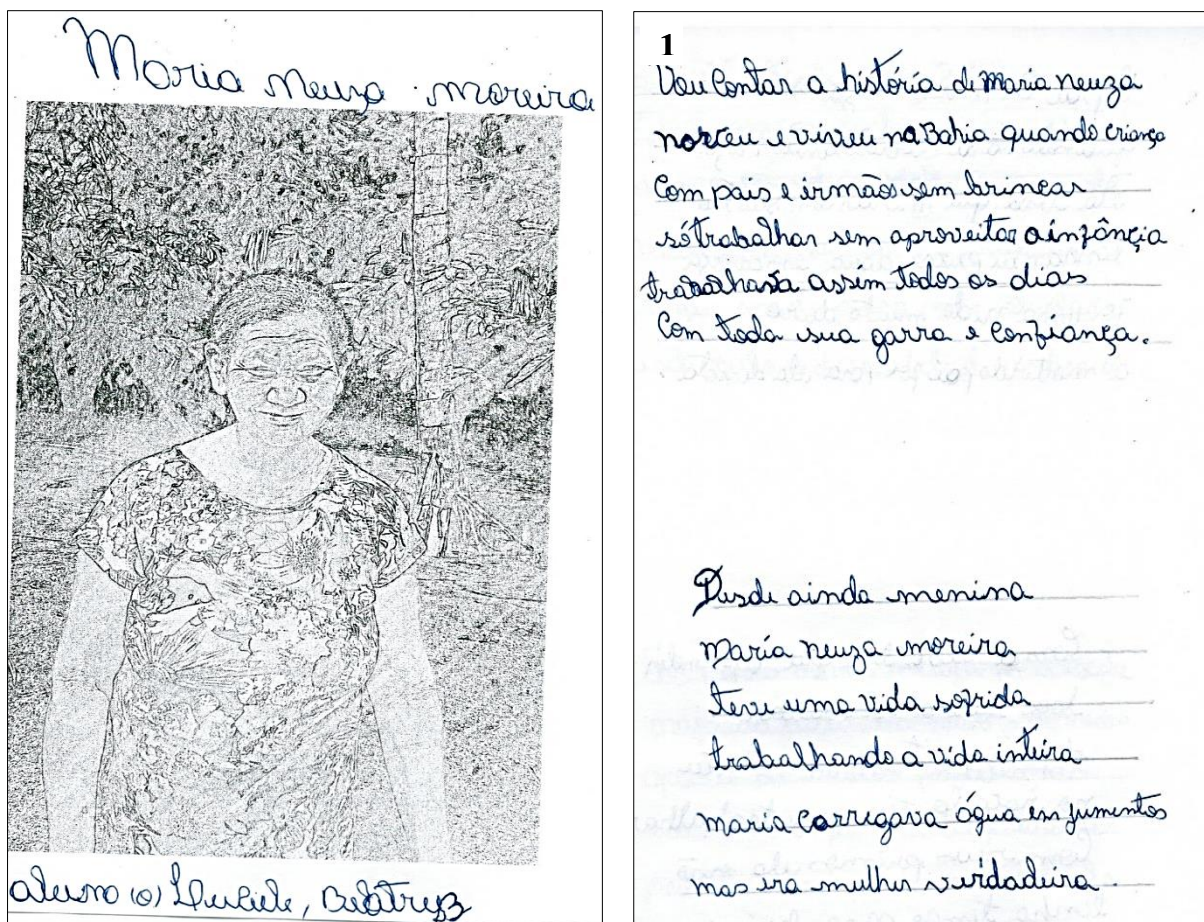 Maria Neuza moreira
aluno (a) Beatryz
1
Vou Contar a história de Maria neuza
nasceu e viveu na Bahia quando criança
Com pais e irmãos sem brincar
só trabalhar sem aproveitar a infância
trabalhava assim todos os dias
Com toda sua garra e confiança.
Desde ainda menina
Maria neuza moreira
teve uma vida sofrida
trabalhando a vida inteira
maria carregava água em jumentos
mas era mulher verdadeira.